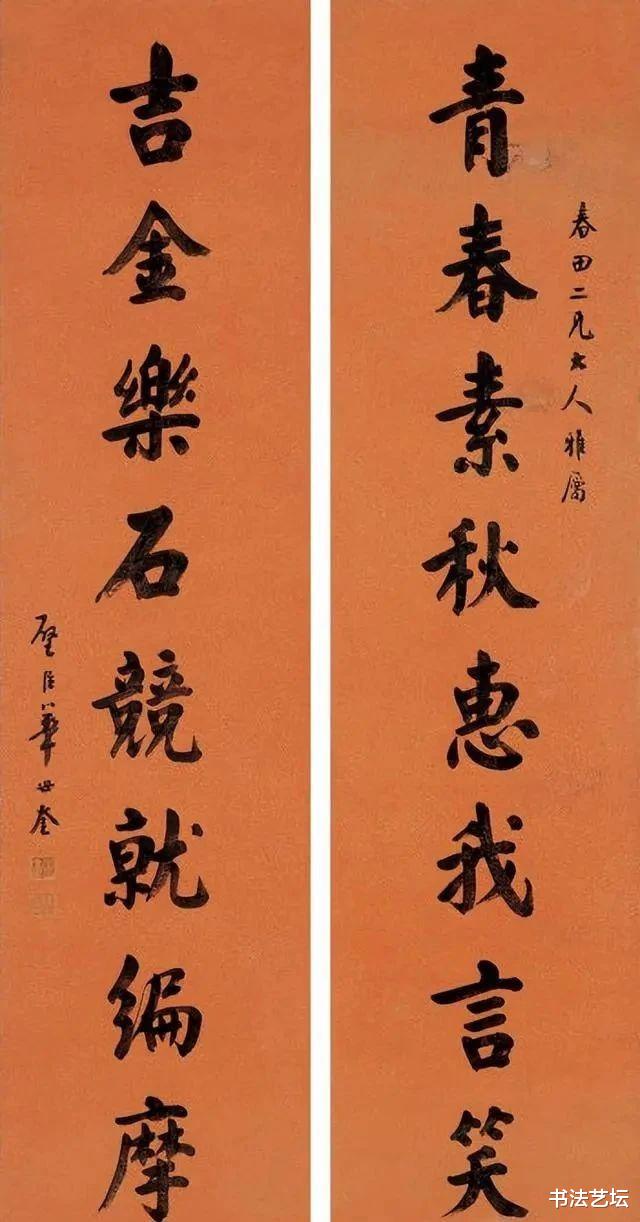 春田二兄大人雅属
青春素秋惠我言笑
吉金樂石競就編摩
璧臣華世奎
书法艺坛